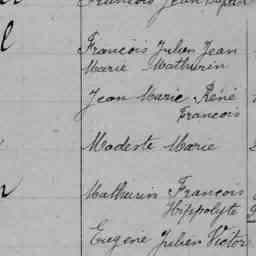 François Jean
François Julien Jean
Marie Mathurin
Jean Marie René
François
Modeste Marie
Mathurin François
Hippolyte
Eugène Julien Victor